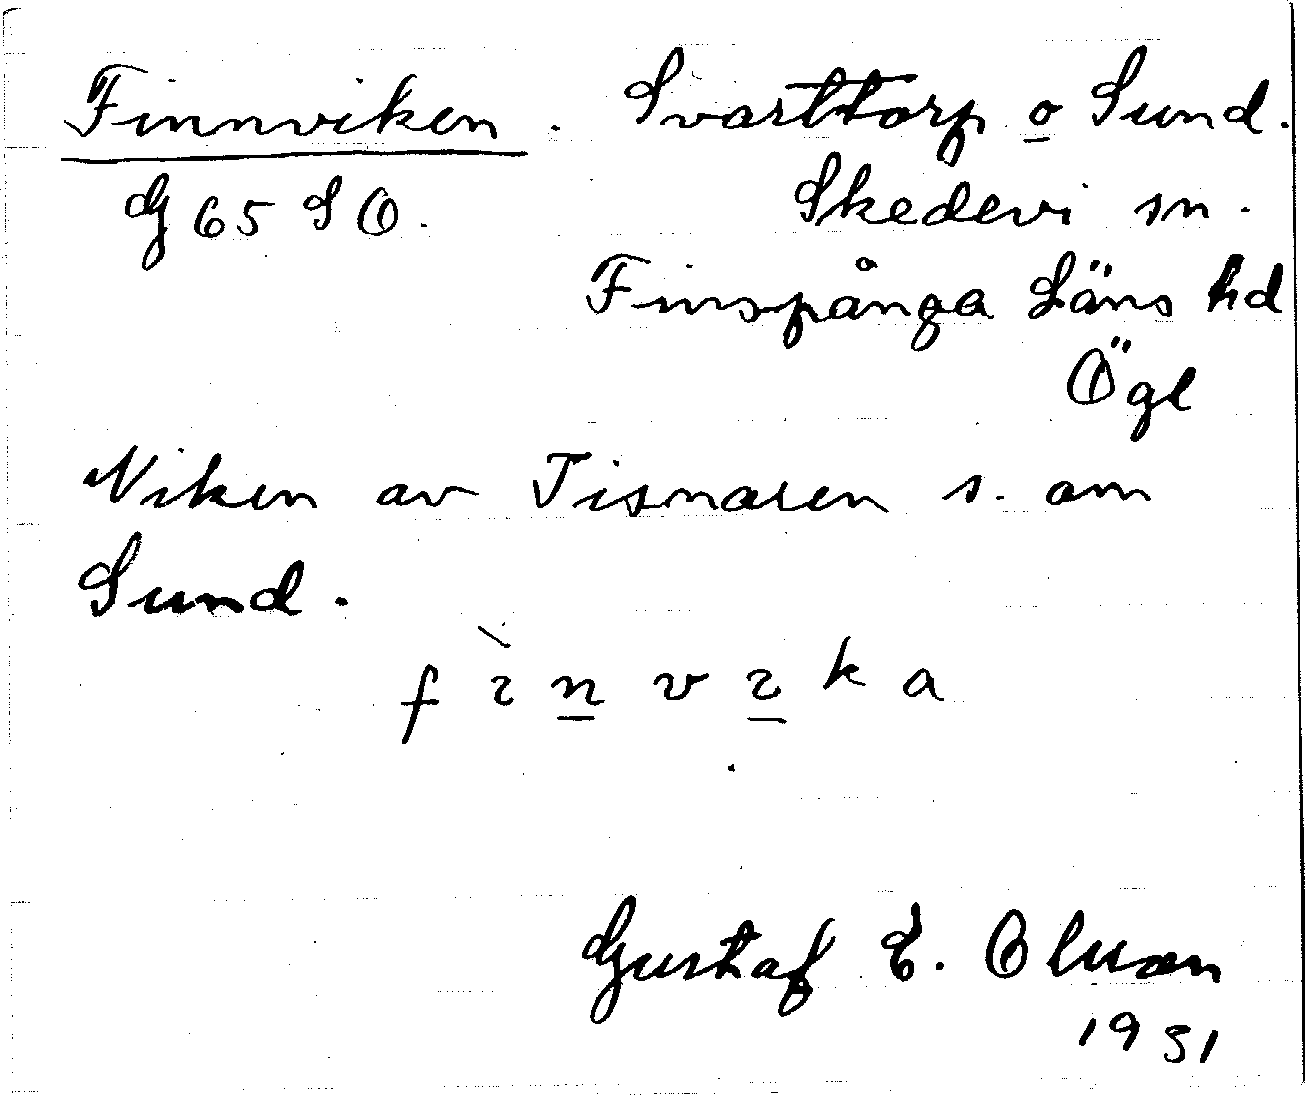 Finnviken. Svarttorp o Sund.
G 65 SO. Skedevi sn.
Finspånga Läns hd
Ögl
Viken av Tisnaren s. om
Sund.
fìnvika
Gustaf E.
1931